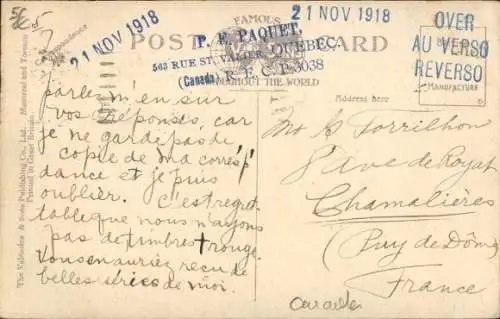 FAMOUS
POST CARD
THROUGHOUT THE WORLD
21 NOV 1918
21 NOV 1918
P. E. PAQUET,
563 RUE ST. VALIER, QUEBEC
(Canada) R.E.C.P. 3038
OVER
AU VERSO
REVERSO
MANUFACTURE
Correspondence
Address here
The Valentine & Sons Publishing Co., Ltd., Montreal and Toronto
Printed in Great Britain.
parlez m'en sur
vos réponses, car
je ne garde pas de
copie de ma corresp
dance et je puis
oublier. C'est regret
table que nous n'ayons
pas de timbres + rouge.
Vous en auriez reçu de
belles séries de moi.
Mr G Torrilhon
Ave de Royat
Chamalières
(Puy de Dôme)
France